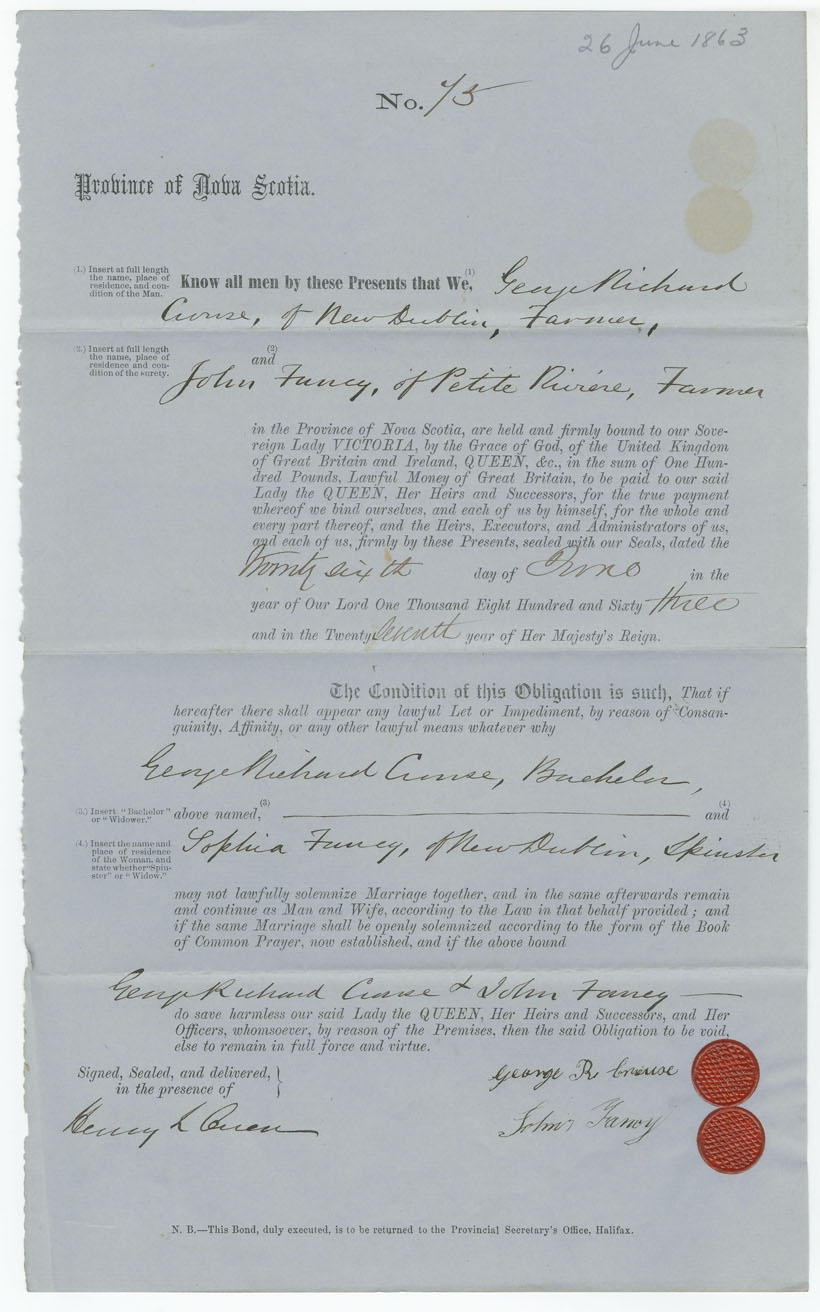 26 June 1863
No. 75
Province of Nova Scotia.
(1.) Insert at full length
the name, place of
residence, and con-
dition of the Man.
Know all men by these Presents that We, (1) George Richard
Crouse, of New Dublin, Farmer,
(2.) Insert at full length
the name, place of
residence and con-
dition of the surety.
(2)
and
John Fancy, of Petite Riviére, Farmer
in the Province of Nova Scotia, are held and firmly bound to our Sove-
reign Lady VICTORIA, by the Grace of God, of the United Kingdom
of Great Britain and Ireland, QUEEN, &c., in the sum of One Hun-
dred Pounds, Lawful Money of Great Britain, to be paid to our said
Lady the QUEEN, Her Heirs and Successors, for the true payment
whereof we bind ourselves, and each of us by himself, for the whole and
every part thereof, and the Heirs, Executors, and Administrators of us,
and each of us, firmly by these Presents, sealed with our Seals, dated the
Twenty sixth day of June in the
year of Our Lord One Thousand Eight Hundred and Sixty three
and in the Twenty seventh year of Her Majesty's Reign.
The Condition of this Obligation is such, That if
hereafter there shall appear any lawful Let or Impediment, by reason of Consan-
guinity, Affinity, or any other lawful means whatever why
George Richard Crouse, Bachelor,
(3.) Insert "Bachelor"
or "Widower."
above named, (3) (4) and
(4.) Insert the name and
place of residence
of the Woman, and
state whether "Spin-
ster" or "Widow."
Sophia Fancy, of New Dublin, Spinster
may not lawfully solemnize Marriage together, and in the same afterwards remain
and continue as Man and Wife, according to the Law in that behalf provided; and
if the same Marriage shall be openly solemnized according to the form of the Book
of Common Prayer, now established, and if the above bound
George Richard Crouse & John Fancy —
do save harmless our said Lady the QUEEN, Her Heirs and Successors, and Her
Officers, whomsoever, by reason of the Premises, then the said Obligation to be void,
else to remain in full force and virtue.
Signed, Sealed, and delivered,
in the presence of
George R Crouse
Henry L Owen
John Fancy
N. B.—This Bond, duly executed, is to be returned to the Provincial Secretary's Office, Halifax.